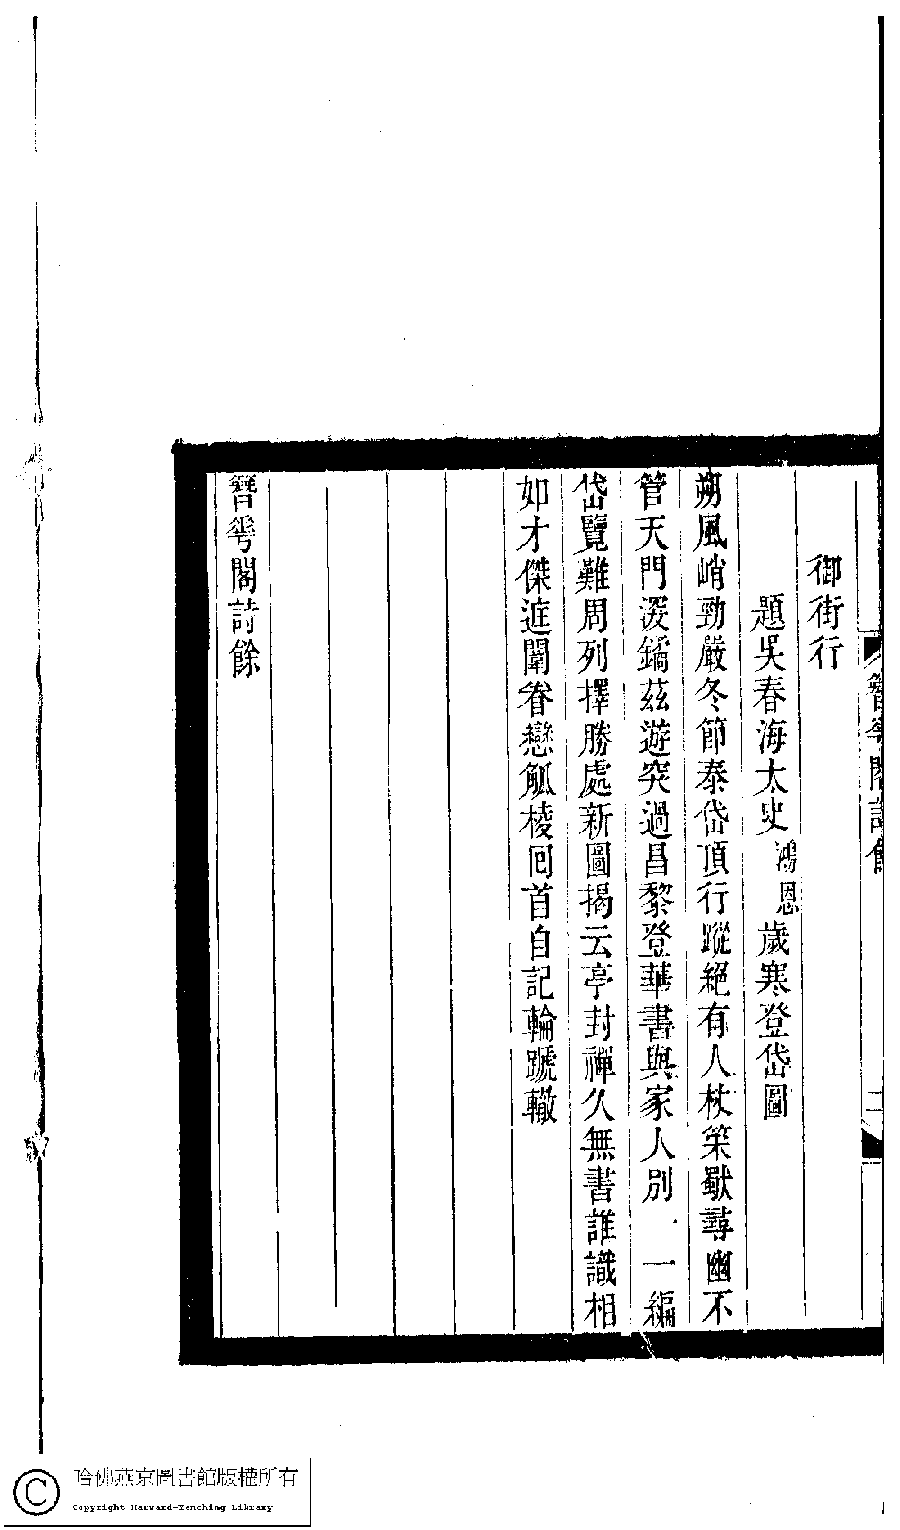 簪𠌶閣詩餘 二
御街行
題吳春海太史鴻恩歲寒登岱圖
朔風峭勁嚴冬節泰岱頂行蹤絕有人杖策尋幽不
管天門深鐍茲遊突過昌黎登華書與家人別 一編
岱覽難周列擇勝處新圖揭云亭封禪久無書誰識相
如才傑庭闈眷戀觚棱回首自記輪蹏轍
簪𠌶閣詩餘
哈佛燕京圖書館版權所有
Copyright Harvard-Yenching Library